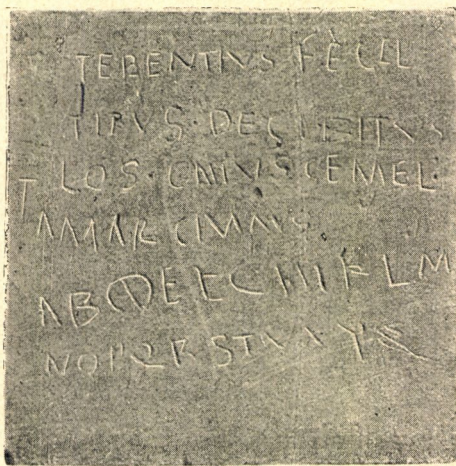 TEBENTIVS FECIT
TIPVS DECVBITVS
T LOS CAIVS CEMEL
AMARCIANVS
ABCDEFGHIKLM
NOPQRSTVXYZ